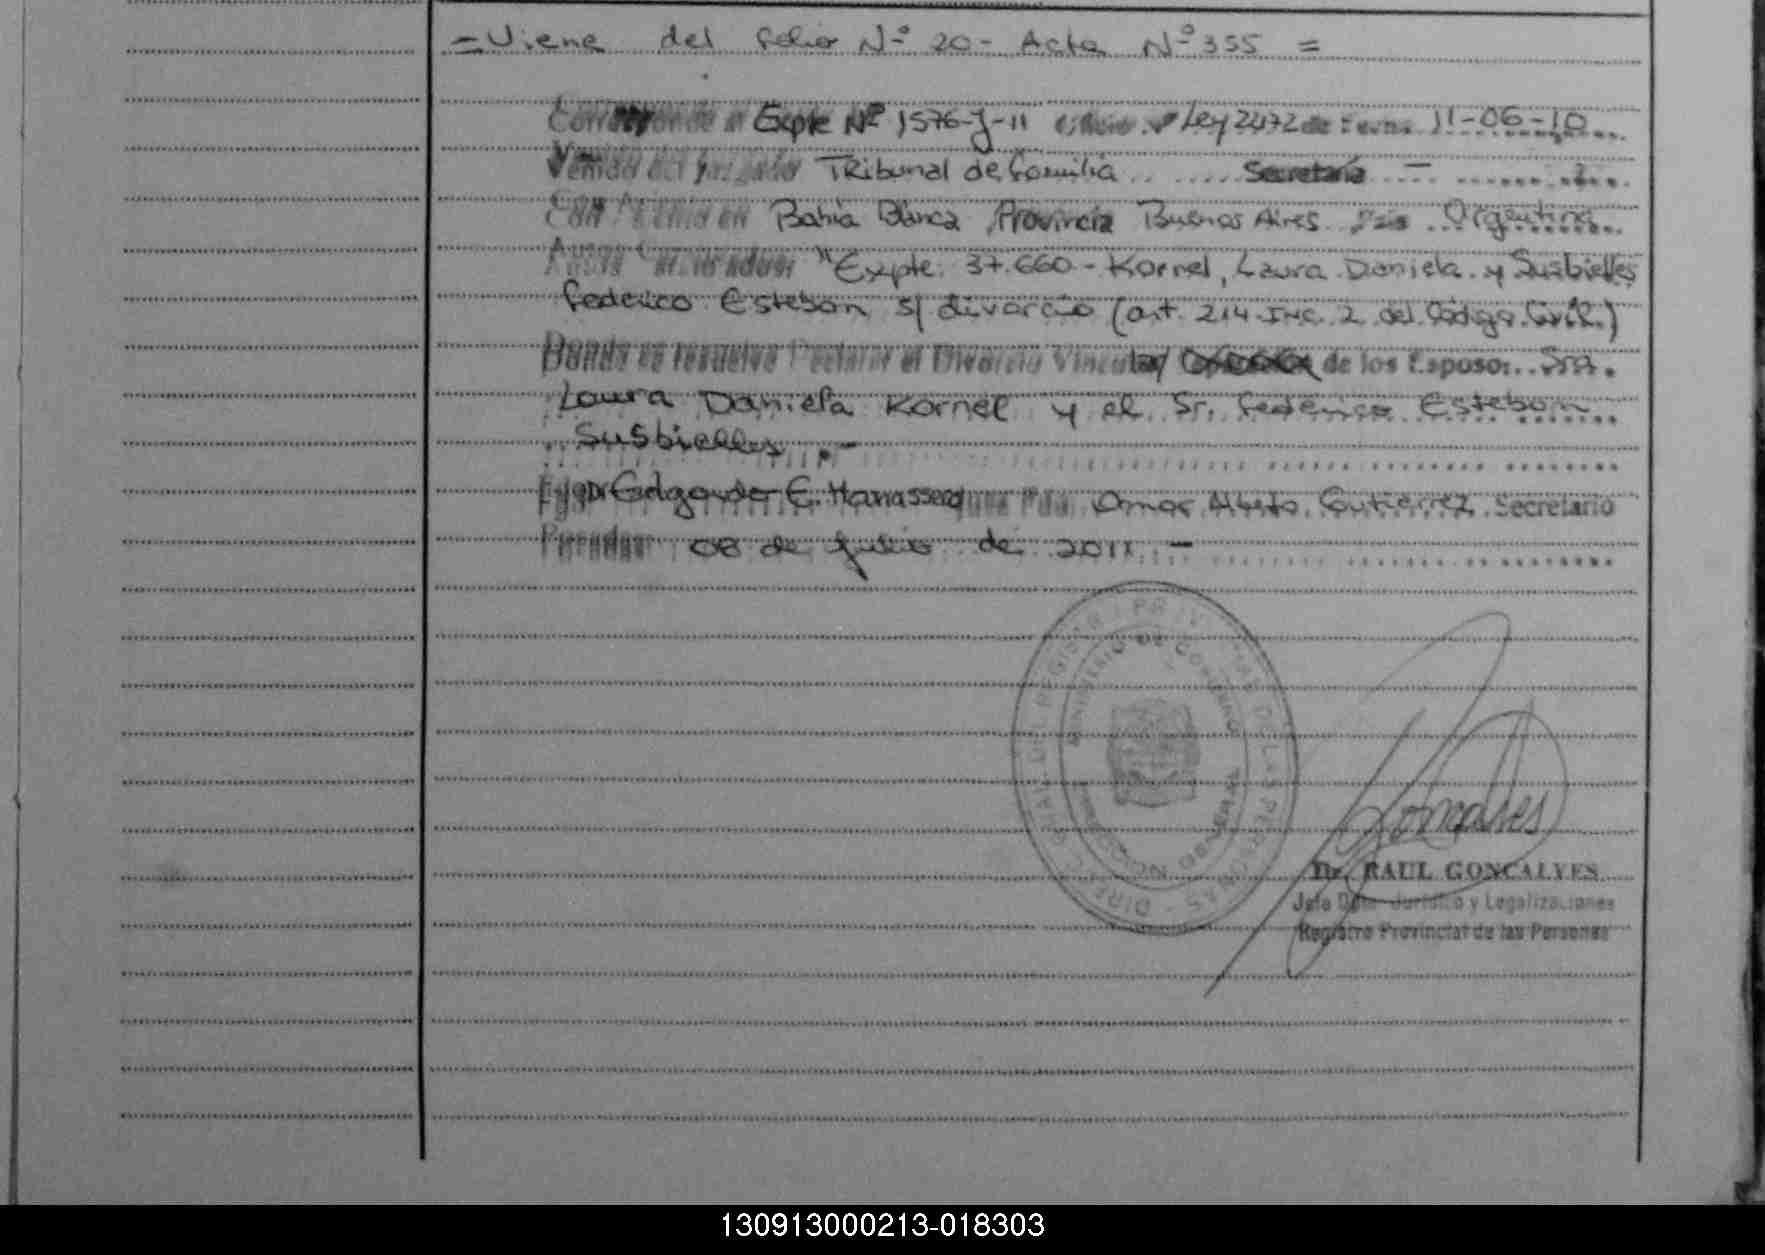 = Viene del folio Nº 20 - Acta Nº 355 =
Corresponde a Expte Nº 1576-J-11 Ley 2472 de Fecha 11-06-10
Venido del Juzgado Tribunal de Familia Secretaría -
Con Asiento en Bahia Blanca Provincia Buenos Aires País Argentina
Autos Caratulados "Expte. 37.660 - Kornel, Laura Daniela y Susbielles
Federico Esteban s/ divorcio (art. 214 Inc. 2 del Código Civil.)
Donde se resuelve Declarar el Divorcio Vincular de los Esposos Sra.
Laura Daniela Kornel y el Sr. Federico Esteban
Susbielles .-
Omar Alberto Gutierrez Secretario
08 de Julio de 2011 -
MINISTERIO DE
Dr. RAUL GONCALVES
Jefe Dpto. Jurídico y Legalizaciones
Registro Provincial de las Personas
130913000213-018303